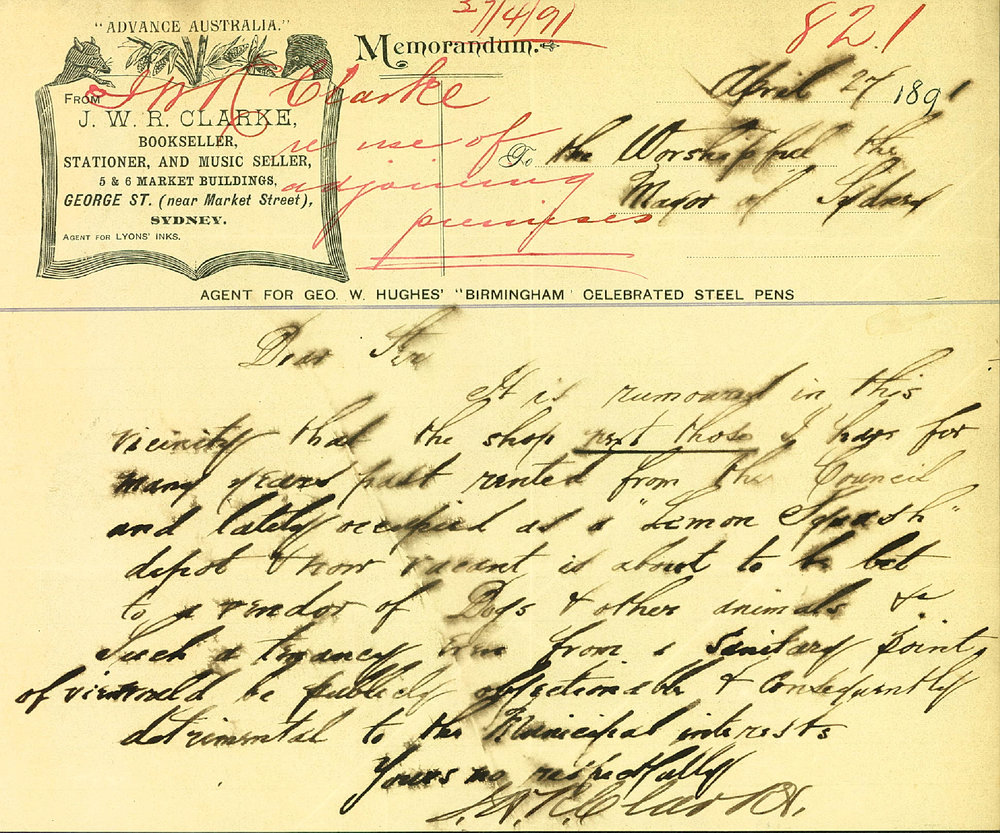 27/4/91
82.1
"ADVANCE AUSTRALIA."
Memorandum.
FROM
J. W. R. CLARKE,
BOOKSELLER,
STATIONER, AND MUSIC SELLER,
5 & 6 MARKET BUILDINGS,
GEORGE ST. (near Market Street),
SYDNEY.
AGENT FOR LYONS' INKS.
J W R Clarke
re use of
adjoining
premises
April 27 1891
To the Worshipful the
Mayor of Sydney
AGENT FOR GEO. W. HUGHES' "BIRMINGHAM" CELEBRATED STEEL PENS
Dear Sir
It is rumoured in this
vicinity that the shop next those I have for
many years past rented from the Council
and lately occupied as a "Lemon Squash"
depot & now vacant is about to be let
to a vendor of Dogs & other animals &c
Such a tenancy even from a Sanitary point
of view would be publicly objectionable & consequently
detrimental to the Municipal interests
Yours respectfully
J.W.R. Clarke